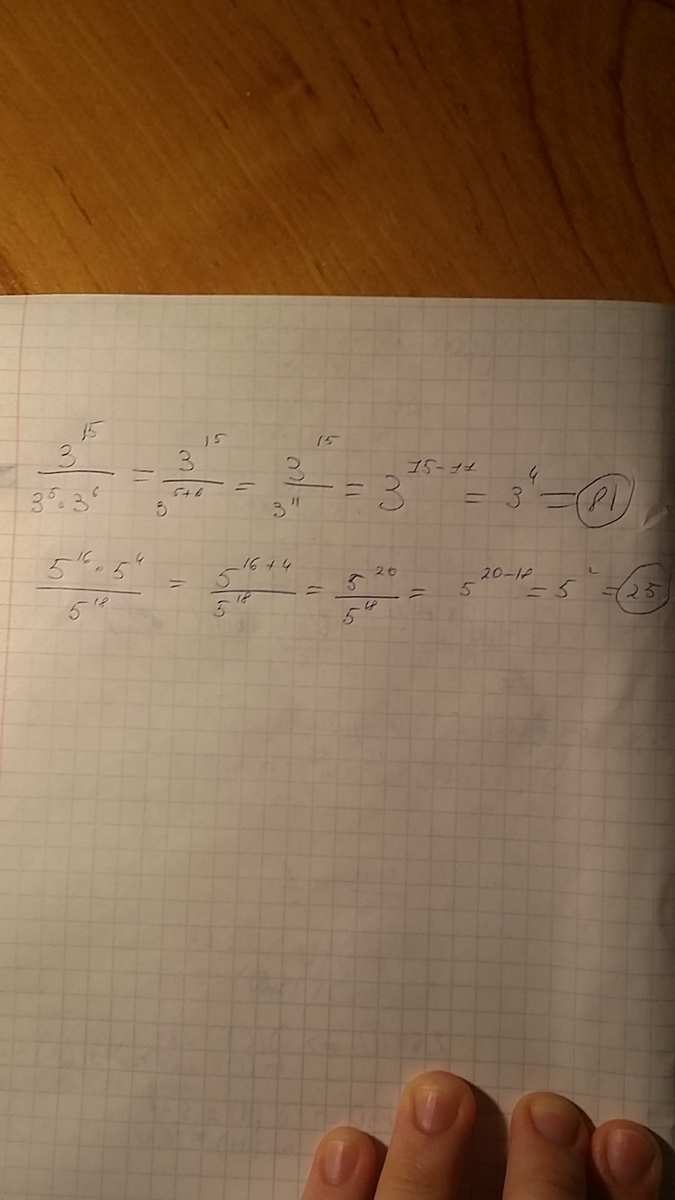 3^15 / (3^5 · 3^6) = 3^15 / 3^(5+6) = 3^15 / 3^11 = 3^(15-11) = 3^4 = 81
(5^16 · 5^4) / 5^18 = 5^(16+4) / 5^18 = 5^20 / 5^18 = 5^(20-18) = 5^2 = 25